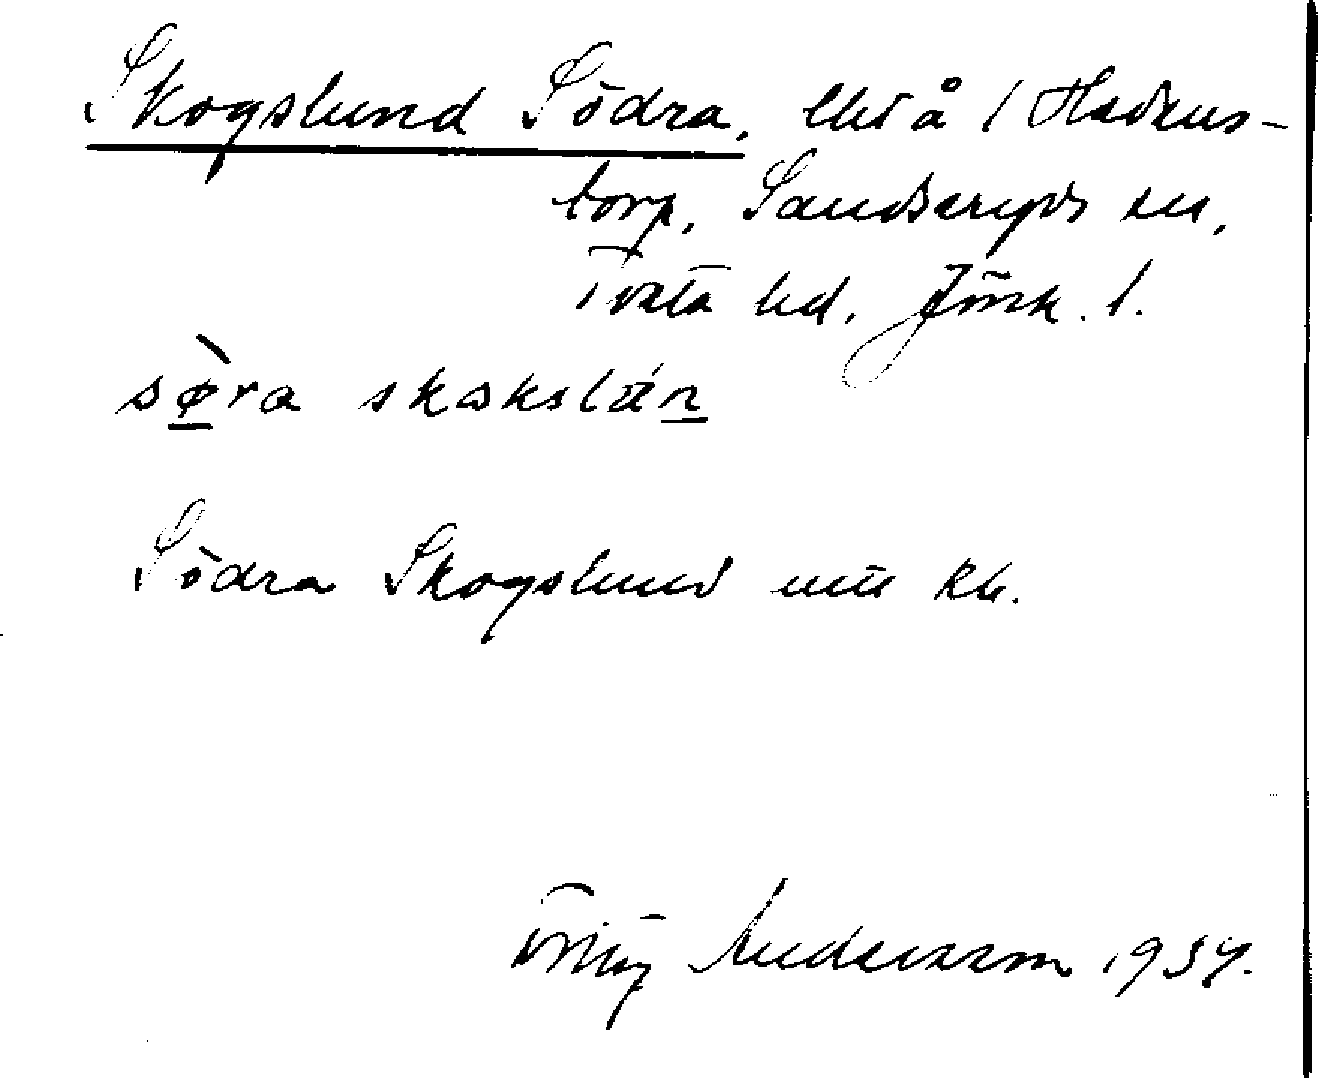 Skogslund Södra, lht å 1 Hedens-
torp, Sandseryds sn,
Tveta hd. Jönk. l.
sø̀ra skokslún
Södra Skogslund
Fritz Andersson 1934.